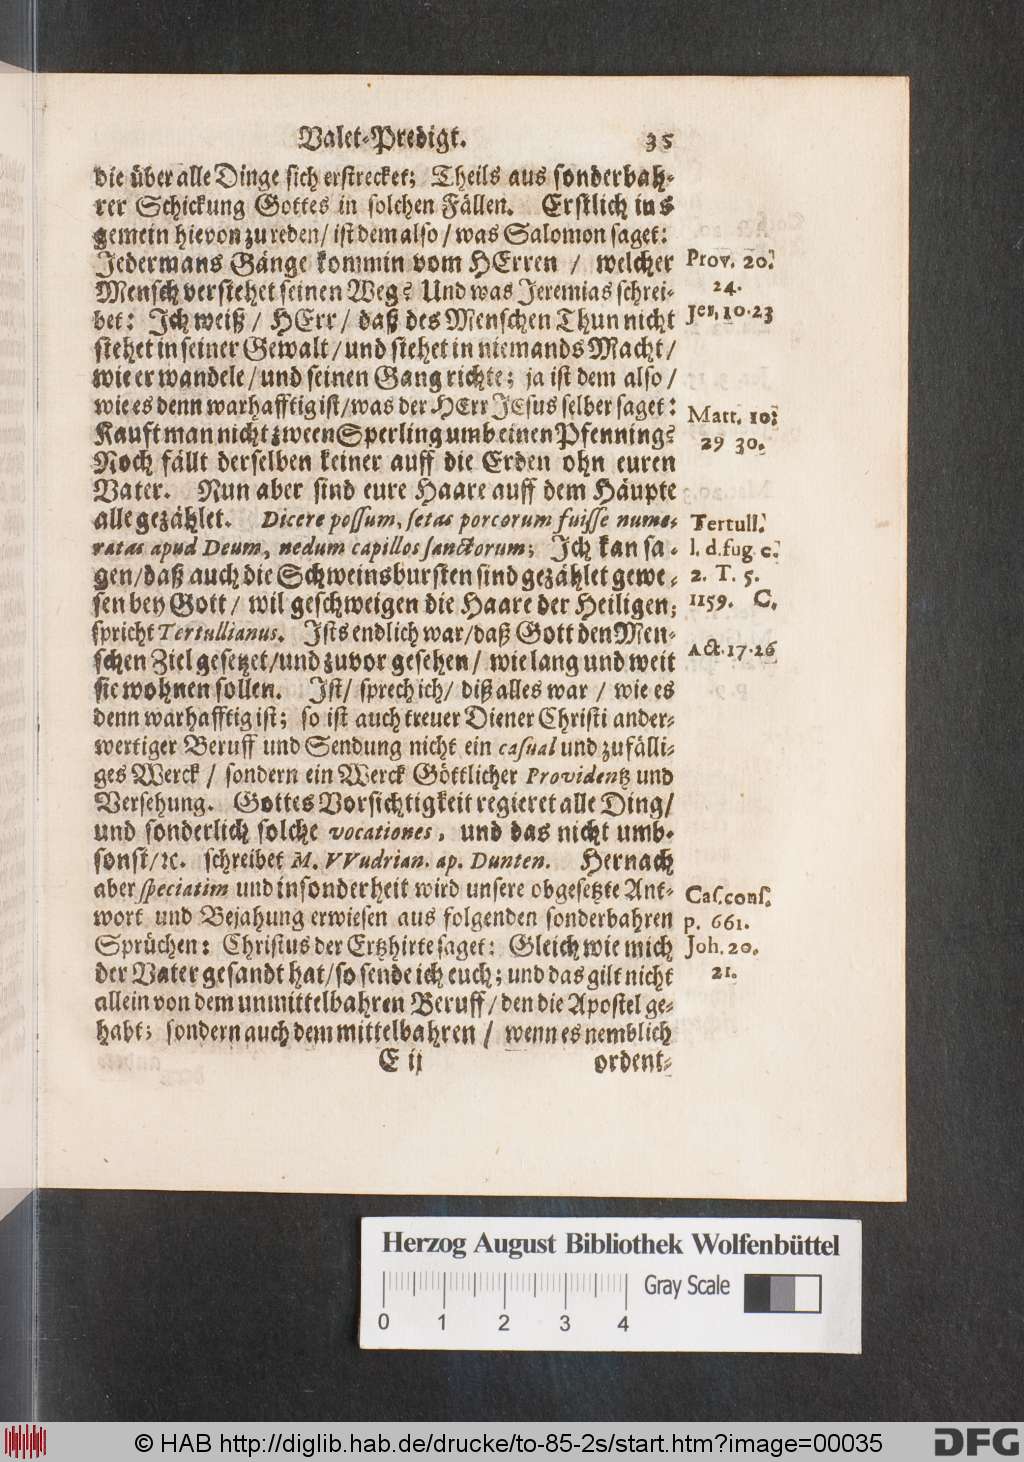 Valet-Predigt. 35
die über alle Dinge sich erstrecket; Theils aus sonderbah-
rer Schickung Gottes in solchen Fällen. Erstlich ins
gemein hievon zu reden/ ist dem also/ was Salomon saget:
Jedermans Gänge kommin vom HErren / welcher
Prov. 20.
Mensch verstehet seinen Weg? Und was Jeremias schrei-
24.
bet: Ich weiß / HErr / daß des Menschen Thun nicht
Jer. 10.23
stehet in seiner Gewalt / und stehet in niemands Macht /
wie er wandele / und seinen Gang richte; ja ist dem also /
wie es denn warhafftig ist/ was der HErr JEsus selber saget:
Matt. 10:
Kaufft man nicht zween Sperling umb einen Pfenning?
29 30.
Noch fällt derselben keiner auff die Erden ohn euren
Vater. Nun aber sind eure Haare auff dem Häupte
alle gezählet. Dicere possum, setas porcorum fuisse nume-
Tertull.
ratas apud Deum, nedum capillos sanctorum; Ich kan sa-
l. d. fug. c.
gen/ daß auch die Schweinsbursten sind gezählet gewe-
2. T. 5.
sen bey Gott / wil geschweigen die Haare der Heiligen;
1159. C.
spricht Tertullianus. Ists endlich war/ daß Gott den Men-
Act. 17.26
schen Ziel gesetzet/ und zuvor gesehen / wie lang und weit
sie wohnen sollen. Ist/ sprech ich/ diß alles war / wie es
denn warhafftig ist; so ist auch treuer Diener Christi ander-
wertiger Beruff und Sendung nicht ein casual und zufälli-
ges Werck / sondern ein Werck Göttlicher Providentz und
Versehung. Gottes Vorsichtigkeit regieret alle Ding/
und sonderlich solche vocationes, und das nicht umb-
sonst/ ꝛc. schreibet M. VVudrian. ap. Dunten. Hernach
aber speciatim und insonderheit wird unsere obgesetzte Ant-
Cas. cons.
wort und Bejahung erwiesen aus folgenden sonderbahren
p. 661.
Sprüchen: Christus der Ertzhirte saget: Gleich wie mich
Joh. 20.
der Vater gesandt hat/ so sende ich euch; und das gilt nicht
21.
allein von dem unmittelbahren Beruff / den die Apostel ge-
habt; sondern auch dem mittelbahren / wenn es nemblich
E ij ordent-
Herzog August Bibliothek Wolfenbüttel
Gray Scale
0 1 2 3 4
© HAB http://diglib.hab.de/drucke/to-85-2s/start.htm?image=00035
DFG